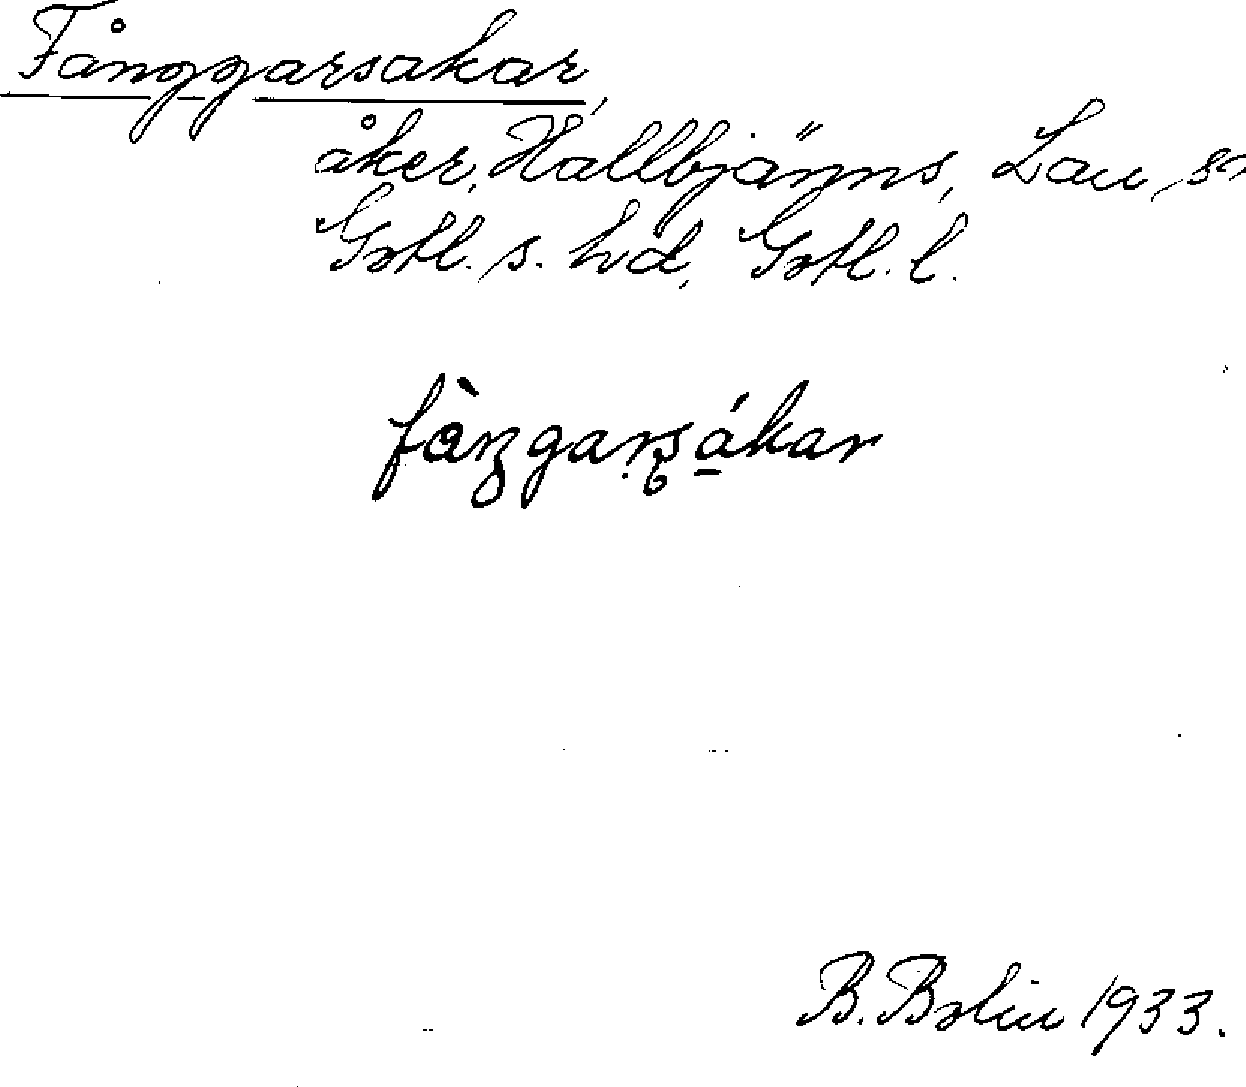 Fånggarsakar,
åker, Hallbjänns, Lau sn
Gotl. s. hd, Gotl. l.
B. Bolin 1933.